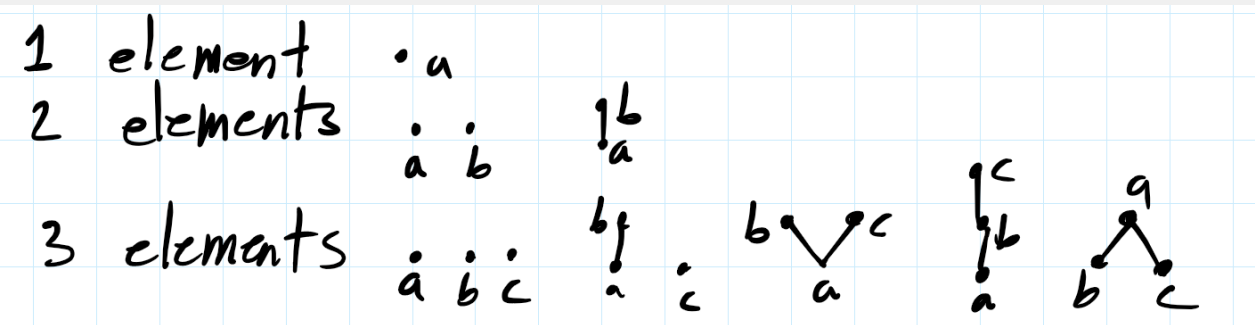 1 element a
2 elements a b b a
3 elements a b c b a c b c a c b a a b c